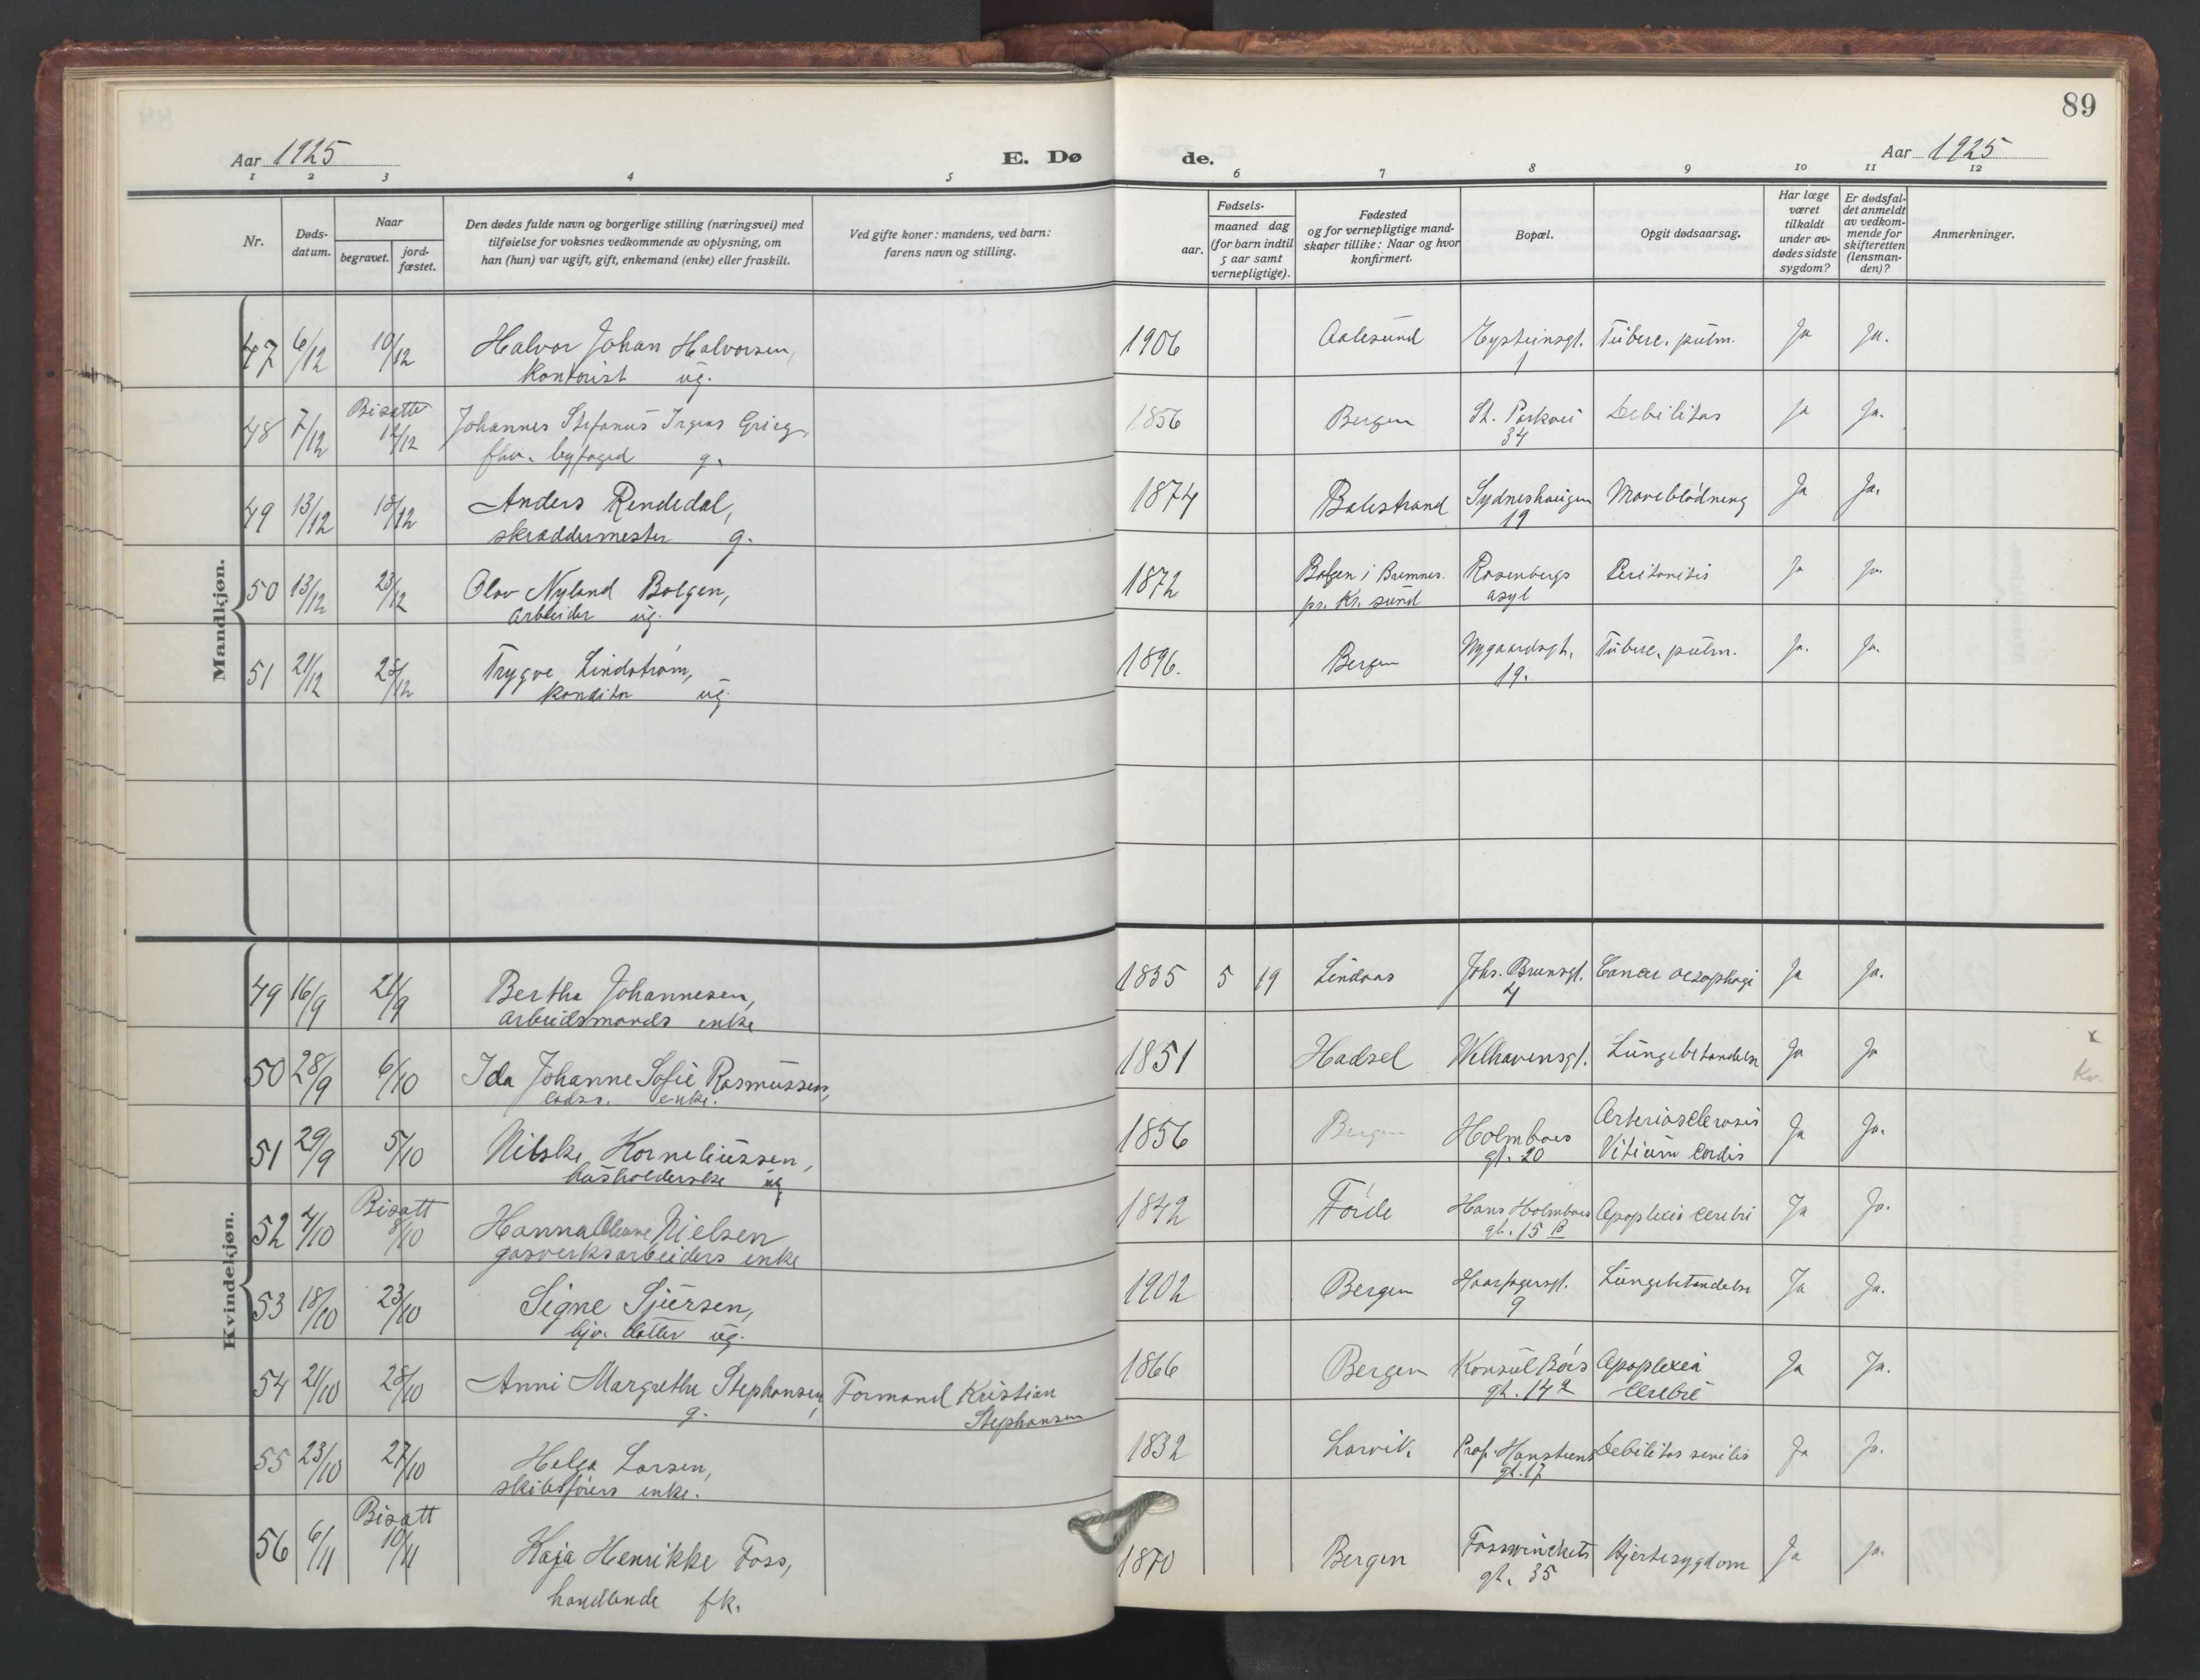 89
Aar 1925
E. Dø de.
Aar 1925
1 2 3 4 5 6 7 8 9 10 11 12
Nr.
Døds-
datum.
Naar
begravet.
jord-
fæstet.
Den dødes fulde navn og borgerlige stilling (næringsvei) med
tilføielse for voksnes vedkommende av oplysning, om
han (hun) var ugift, gift, enkemand (enke) eller fraskilt.
Ved gifte koner: mandens, ved barn:
farens navn og stilling.
Fødsels-
aar.
maaned dag
(for barn indtil
5 aar samt
vernepligtige).
Fødested
og for vernepligtige mand-
skaper tillike: Naar og hvor
konfirmert.
Bopæl.
Opgit dødsaarsag.
Har læge
været
tilkaldt
under av-
dødes sidste
sygdom?
Er dødsfal-
det anmeldt
av vedkom-
mende for
skifteretten
(lensman-
den)?
Anmerkninger.
Mandkjøn.
47 6/12 10/12 Halvor Johan Halvorsen, 1906 Aalesund Eysteinsgt. Tuberc. pulm. Ja Ja.
kontorist ug. 1
48 7/12 Bisatte 12/12 Johannes Stefanus Grieg, 1856 Bergen St. Parkvei Debilitas Ja Ja.
fhv. byfoged g. 34
49 13/12 18/12 Anders Rendedal, 1874 Balestrand Sydneshaugen Maveblødning Ja Ja.
skræddermester g. 19
50 13/12 23/12 Olav Nyland Bolgen, 1872 Bolgen i Bremnes. Rosenbergs Peritonitis Ja Ja.
arbeider ug. pr. Kr. sund asyl
51 21/12 28/12 Trygve Lindstrøm, 1896. Bergen Nygaardsgt. Tuberc. pulm. Ja. Ja.
konditor ug. 19.
Kvindekjøn.
49 16/9 21/9 Bertha Johannesen, 1835 5 19 Lindaas Johs. Brunsgt. Cancer oesophagi Ja Ja.
arbeidsmands enke 4
50 28/9 6/10 Ida Johanne Sofie Rasmussen, 1851 Hadsel Welhavensgt. Lungebetændelse Ja Ja x
enke. Kv.
51 29/9 5/10 Nilske Korneliussen, 1856 Bergen Holmboes Arteriosclerosis Ja Ja.
husholderske ug gt. 20 Vitium cordis
52 4/10 Bisatt 8/10 Hanna Oleane Nielsen 1842 Førde Hans Holmboes Apoplexia cerebri Ja Ja.
gasverksarbeiders enke gt. 15 B
53 18/10 23/10 Signe Sjursen, 1902 Bergen Haarfagersgt. Lungebetændelse Ja Ja.
hjv. datter ug. 9
54 21/10 28/10 Anni Margrethe Stephansen, Formand Kristian 1866 Bergen Konsul Børs Apoplexia Ja Ja.
g. Stephansen gt. 14 a cerebri
55 23/10 27/10 Helga Larsen, 1832 Larvik. Prof. Hansteens Debilitas senilis Ja Ja.
skibsførers enke. gt. 17
56 6/11 Bisatt 10/11 Kaja Henrikke Foss, 1870 Bergen Fosswinckels Hjertesygdom Ja Ja.
handlende fk. gt. 35